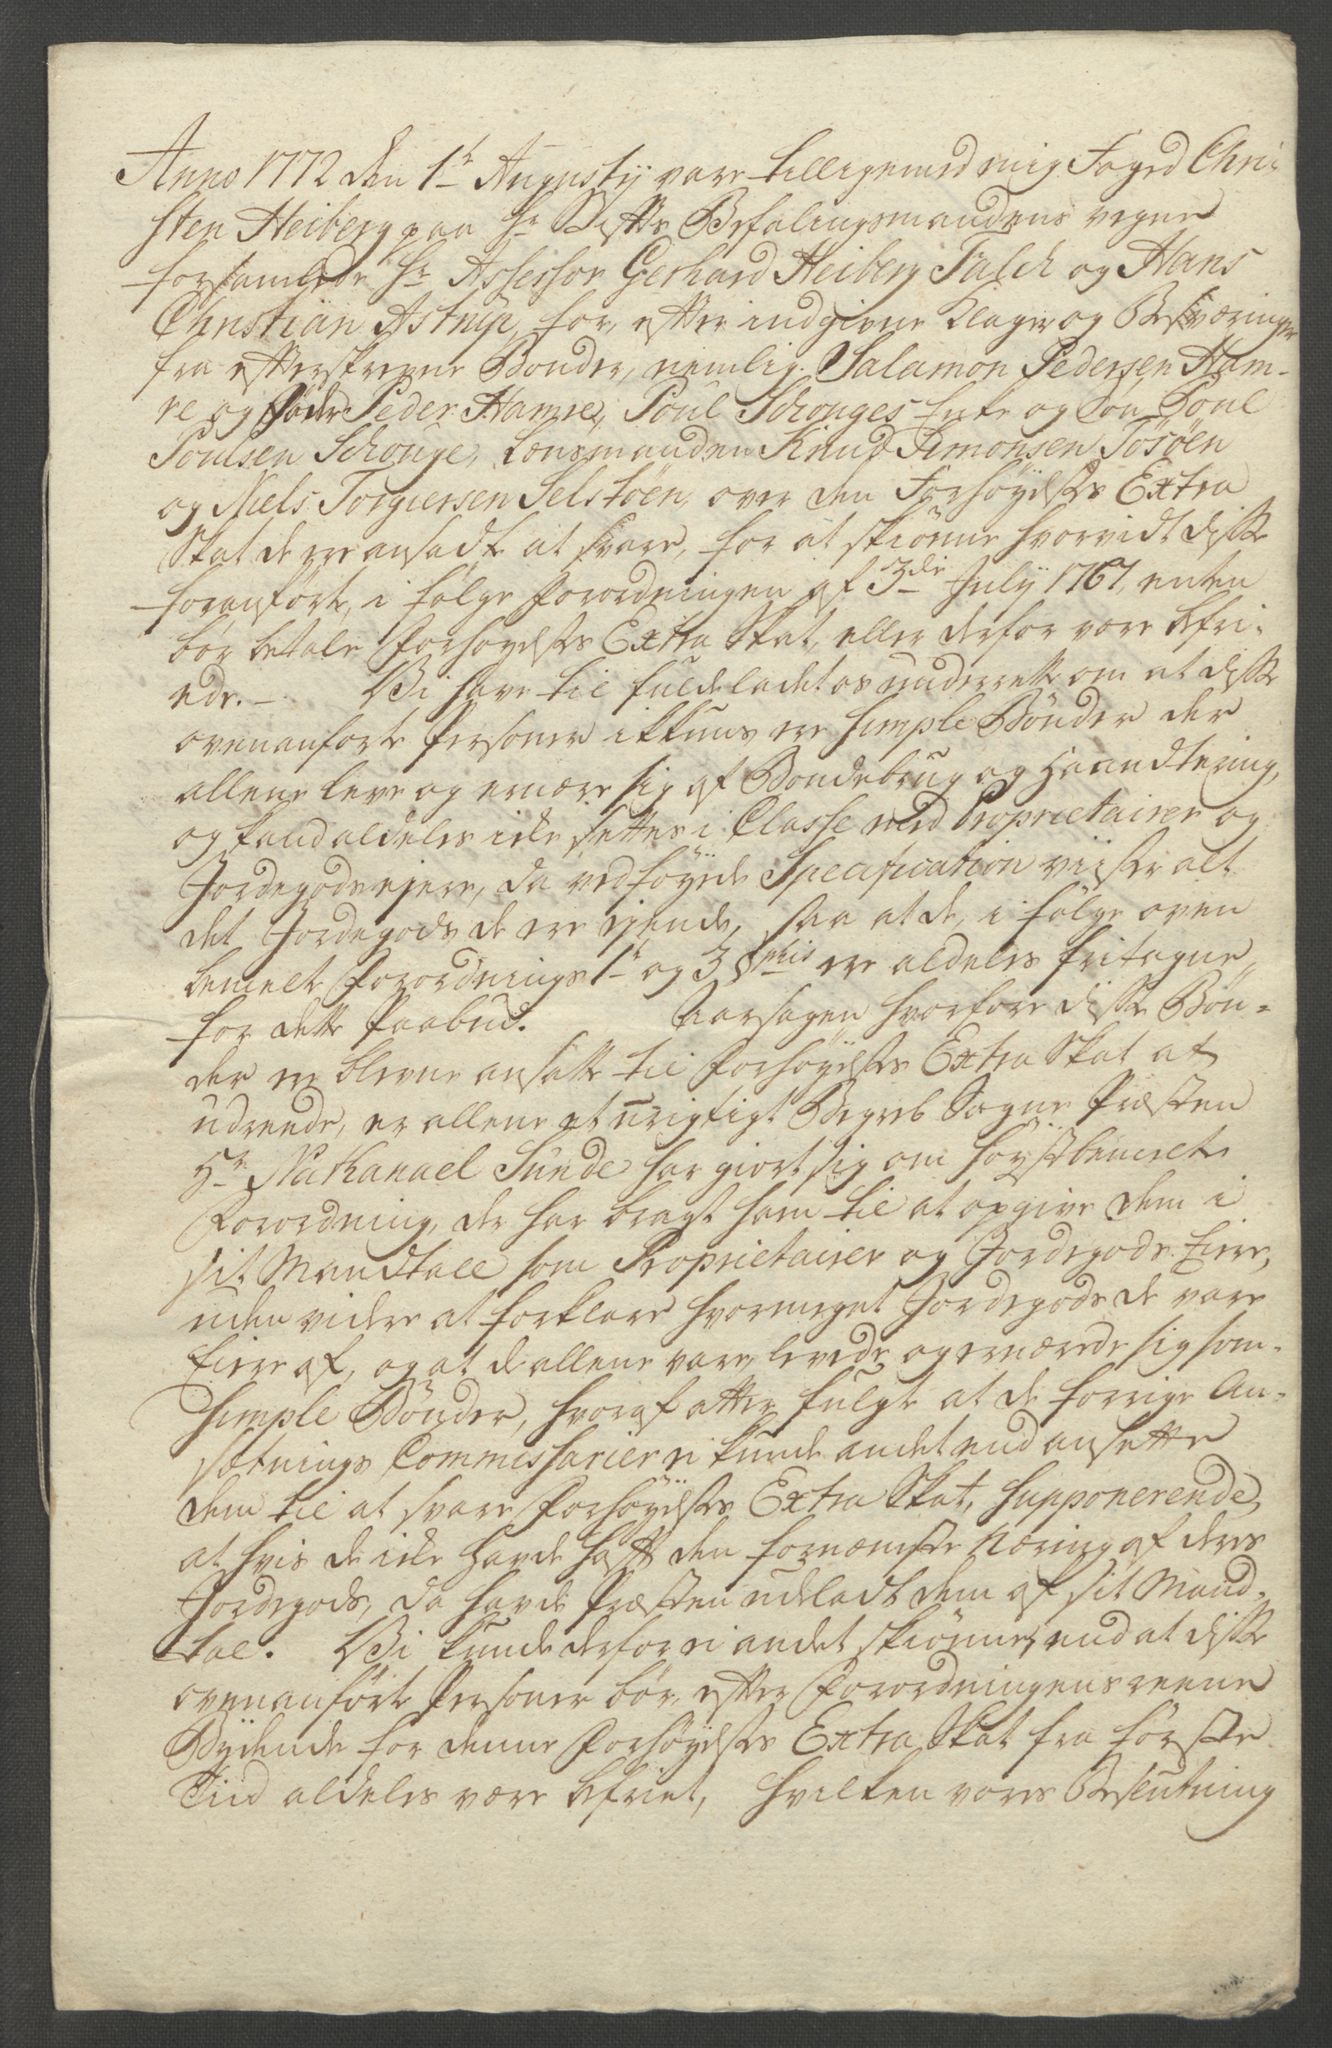 Anno 1772 den 1t Augustij vare tilligemed mig Foged Chri-
sten Heiberg paa Hr Stifts Befalingsmandens vegne
forsamlede Hr Assessor Gerhard Heiberg Falch og Hans
Christian Astrup, for, efter indgivne Klager og Besværinger
fra efterskrevne Bønder, nemlig. Salamon Pedersen Ham-
re og Peder Hamre, Poul Schouges Enke og Søn Poul
Poulsen Schouge, Lensmanden Knud Simonsen Tosøen
og Niels Torgiersen Selstøen, over den Forhøyelses Extra
Skat de ere ansadte at svare, for at skiønne hvorvidt disse
foranførte, i følge Forordningen af 3die July 1767, enten
bør betale Forhøyelses Extra Skat, eller derfor være befri-
ede. - Vi have til fulde ladet os underrette om at disse
ovenanførte Personer ikkuns ere simple Bønder der
allene leve og ernære sig af Bondebrug og Haandtering,
og kand aldeles icke settes i Classe med Proprietairer og
Jordegodsejere, da vedføyede Specification viiser alt
det Jordegods de ere ejende, saa at de, i følge oven
bemelte Forordnings 1t og 3 §phis ere aldeles fritagne
for dette Paabud. Aarsagen hvorfore disse Bøn-
der ere blevne ansatte til Forhøyelses Extra Skat at
udreede, er allene et urigtigt Begreb Sogne Præsten
Hr Nathanael Sunde har giort sig om høystbemelte
Forordning, der har bragt ham til at opgive dem i
sit Mandtall som Proprietairer og Jordegods Eiere,
uden videre at forklare hvormeget Jordegods de vare
Eiere af, og at de allene vare, levede og ernærede sig som
simple Bønder, hvoraf atter fulgte at de forrige An-
sætnings Commissarier ei kunde andet end ansette
dem til at svare Forhøyelses Extra Skat, supponerende,
at hvis de icke havde haft den fornemste Næring af deres
Jordegods, da havde Præsten udeladt dem af sit Mand-
tal. Vi kunde derfor ei andet skiønne, end at disse
ovenanførte Personer bør, efter Forordningens reene
Bydende for denne Forhøyelses Extra Skat fra første
Tiid aldeles være befriet, hvilken vores Beslutning